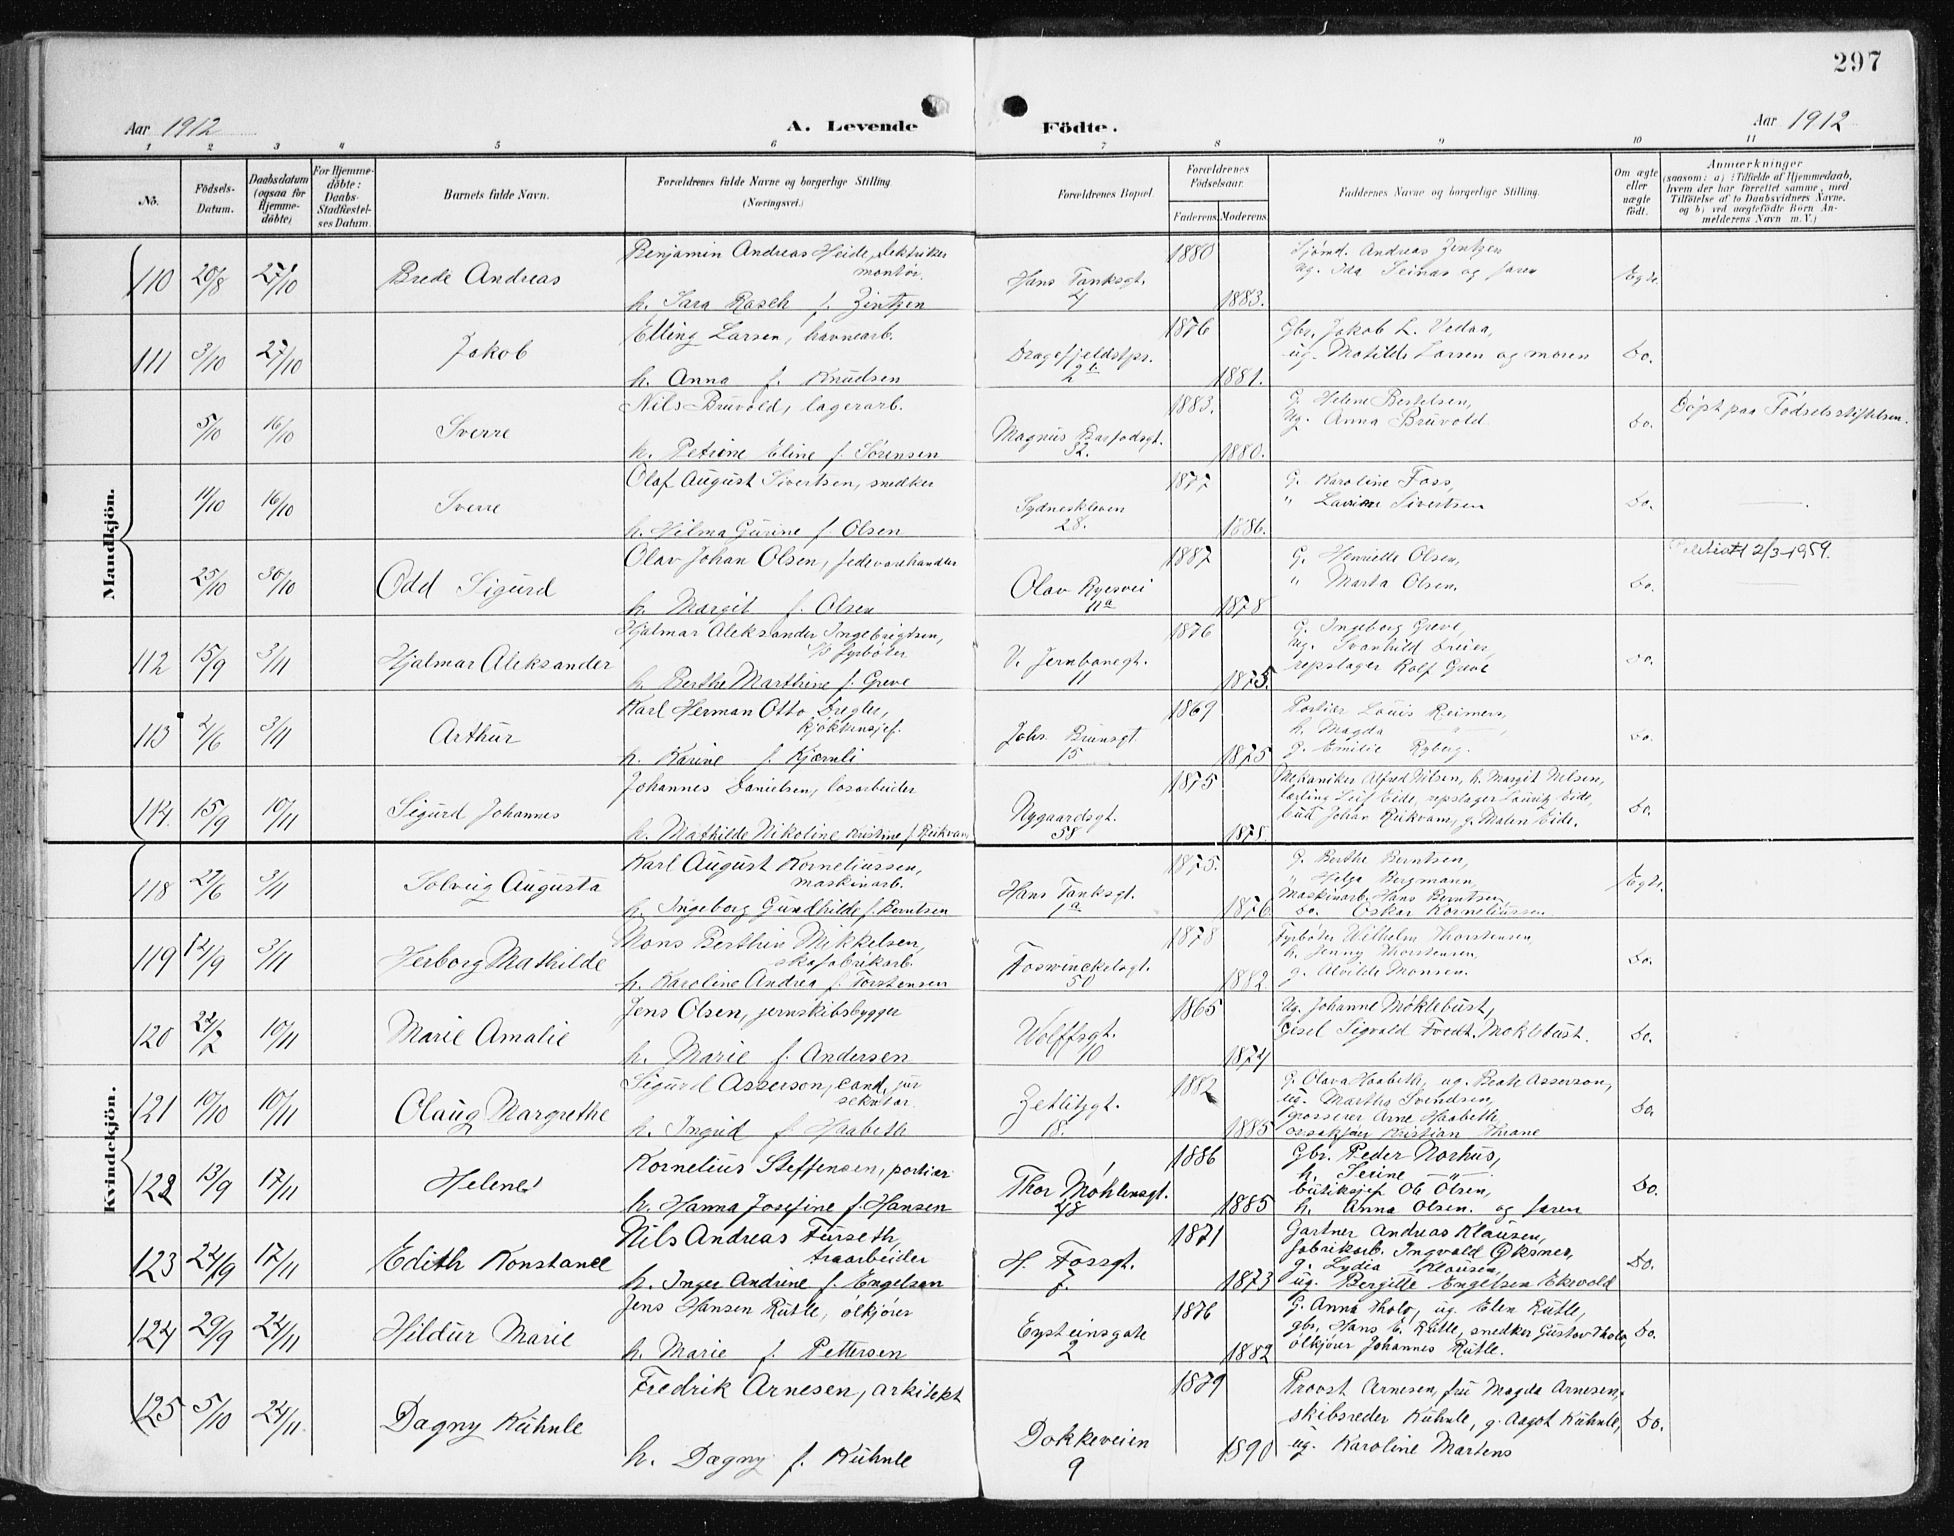 297
Aar 1912
A. Levende Födte.
Aar 1912
1 2 3 4 5 6 7 8 9 10 11
No.
Födsels-Datum.
Daabsdatum (ogsaa for Hjemme-döbte)
For Hjemme-döbte: Daabs-Stadfæstel-ses Datum.
Barnets fulde Navn.
Forældrenes fulde Navne og borgerlige Stilling (Næringsvei.)
Forældrenes Bopæl.
Forældrenes Födselsaar.
Faderens. Moderens.
Faddernes Navne og borgerlige Stilling.
Om ægte eller uægte födt.
Anmærkninger
(saasom: a) i Tilfælde af Hjemmedaab, hvem der har forrettet samme, med Tilföielse af to Daabsvidners Navne, og b) ved uægtefödte Börn An-melderens Navn m. V.)
Mandkjön.
110 20/8 27/10 Brede Andreas
Benjamin Andreas Heide, elektriker
montør.
h. Sara Rasch f. Zintzen
Hans Tanksgt.
4
1880
1883.
Andreas Zintzen
ug. Ida Seinas og faren
Egte.
111 3/10 27/10 Jakob
Elling Larsen, havnearb.
h. Anna f. Knudsen
Dragefjeldstpr.
1876
1881.
Gbr. Jakob L. Vedaa,
ug. Matilde Larsen og moren
Do.
5/10 16/10 Sverre
Nils Bruvold, lagerarb.
h. Petrine Eline f. Sørensen
Magnus Barfodsgt.
32.
1883.
1880.
G. Helene Bertelsen,
Ug. Anna Bruvold.
Do.
Døpt paa Fødselsstiftelsen.
11/10 16/10 Sverre
Olaf August Sivertsen, snedker
h. Hilma Gurine f. Olsen
Sydneskleven
28.
1877
1886.
G. Karoline Foss,
" Sivertsen
Do.
25/10 30/10 Odd Sigurd
Olav Johan Olsen, fedevarehandler
h. Margit f. Olsen
Olav Ryesvei
11a
1887
1878
G. Henriette Olsen,
" Marta Olsen.
Do.
2/3-1959.
112 15/9 3/11 Hjalmar Aleksander
Hjalmar Aleksander Ingebrigtsen,
fyrbøter
h. Berthe Marthine f. Greve
V. Jernbanegt.
11
1876
1875.
G. Ingeborg Greve,
Ug. Svanhild Breier,
repslager Rolf Greve
Do.
113 2/6 3/11 Arthur
Karl Herman Otto Dregler,
kjøkkensjef.
h. Karine f. Kjærnli
Johs. Brunsgt.
15
1869
1875
Portier Louis Reimers,
h. Magda — " —,
g. Emilie Ryberg.
Do.
114. 15/9 10/11 Sigurd Johannes
Johannes Danielsen, losarbeider
h. Mathilde Nikoline Kristine f. Reikvam
Nygaardsgt.
58
1875
1878
Mekaniker Alfred Nilsen, h. Margit Nilsen,
lærling Leif Eide, repslager Lauritz Eide,
bud Johan Reikvam, g. Malen Eide.
Do.
Kvindekjön.
118 27/6 3/11 Solveig Augusta
Karl August Korneliussen,
maskinarb.
h. Ingeborg Gundhilde f. Berntsen
Hans Tanksgt.
1a
1875.
1876
G. Berthe Berntsen,
" Helga Bergmann,
Maskinarb. Hans Berntsen,
Do. Oskar Korneliussen
Egte.
119 12/9 3/11 Herborg Mathilde
Mons Berthin Mikkelsen,
skofabrikarb.
h. Karoline Andrea f. Torstensen
Foswinckelsgt.
50
1878
1882
Fyrbøter Wilhelm Thorstensen,
h. Jenny Thorstensen,
g. Alvilde Monsen.
Do.
120 22/7 10/11 Marie Amalie
Jens Olsen, jernskibsbygger
h. Marie f. Andersen
Wolffsgt.
10
1865
1874
Ug. Johanne Møklebust,
Sigvald Fredt. Møklebust.
Do.
121 10/10 10/11 Olaug Margrethe
Sigurd Asserson, cand. jur
sekretær.
h. Ingrid f. Haabeth
Zetlitzgt.
18.
1882
1885
G. Olava Haabeth, ug. Beate Asserson,
ug. Martha Svendsen,
grosserer Arne Haabeth,
Kristian Thrane
Do.
122 13/9 17/11 Helene
Kornelius Steffensen, portier
h. Hanna Josefine f. Hansen
Thor Møhlensgt.
48
1886
1885
Gbr. Peder Norhus,
h. Serine — " —
butiksjef Ole Olsen,
h. Anna Olsen. og faren
Do.
123 22/9 17/11 Edith Konstance
Nils Andreas Furseth,
traarbeider
h. Inger Andrine f. Engelsen
H. Fossgt.
7.
1871
1873
Gartner Andreas Klausen,
fabrikarb. Ingvald Øksnes,
g. Lydia Klausen,
ug. Bergitte Engelsen Ekevold
Do.
124 29/9 24/11 Hildur Marie
Jens Hansen Rutle, ølkjører
h. Marie f. Pettersen
Eysteinsgate
2
1876
1882
G. Anna Tholo, ug. Elen Rutle,
gbr. Hans E. Rutle, snedker Gustav Tholo,
ølkjører Johannes Rutle.
Do.
125 5/10 24/11 Dagny Kuhnle
Fredrik Arnesen, arkitekt
h. Dagny f. Kuhnle
Dokkeveien
9
1879
1890
Provst Arnesen, fru Magda Arnesen,
skibsreder Kuhnle, g. Aagot Kuhnle,
ug. Karoline Martens
Do.